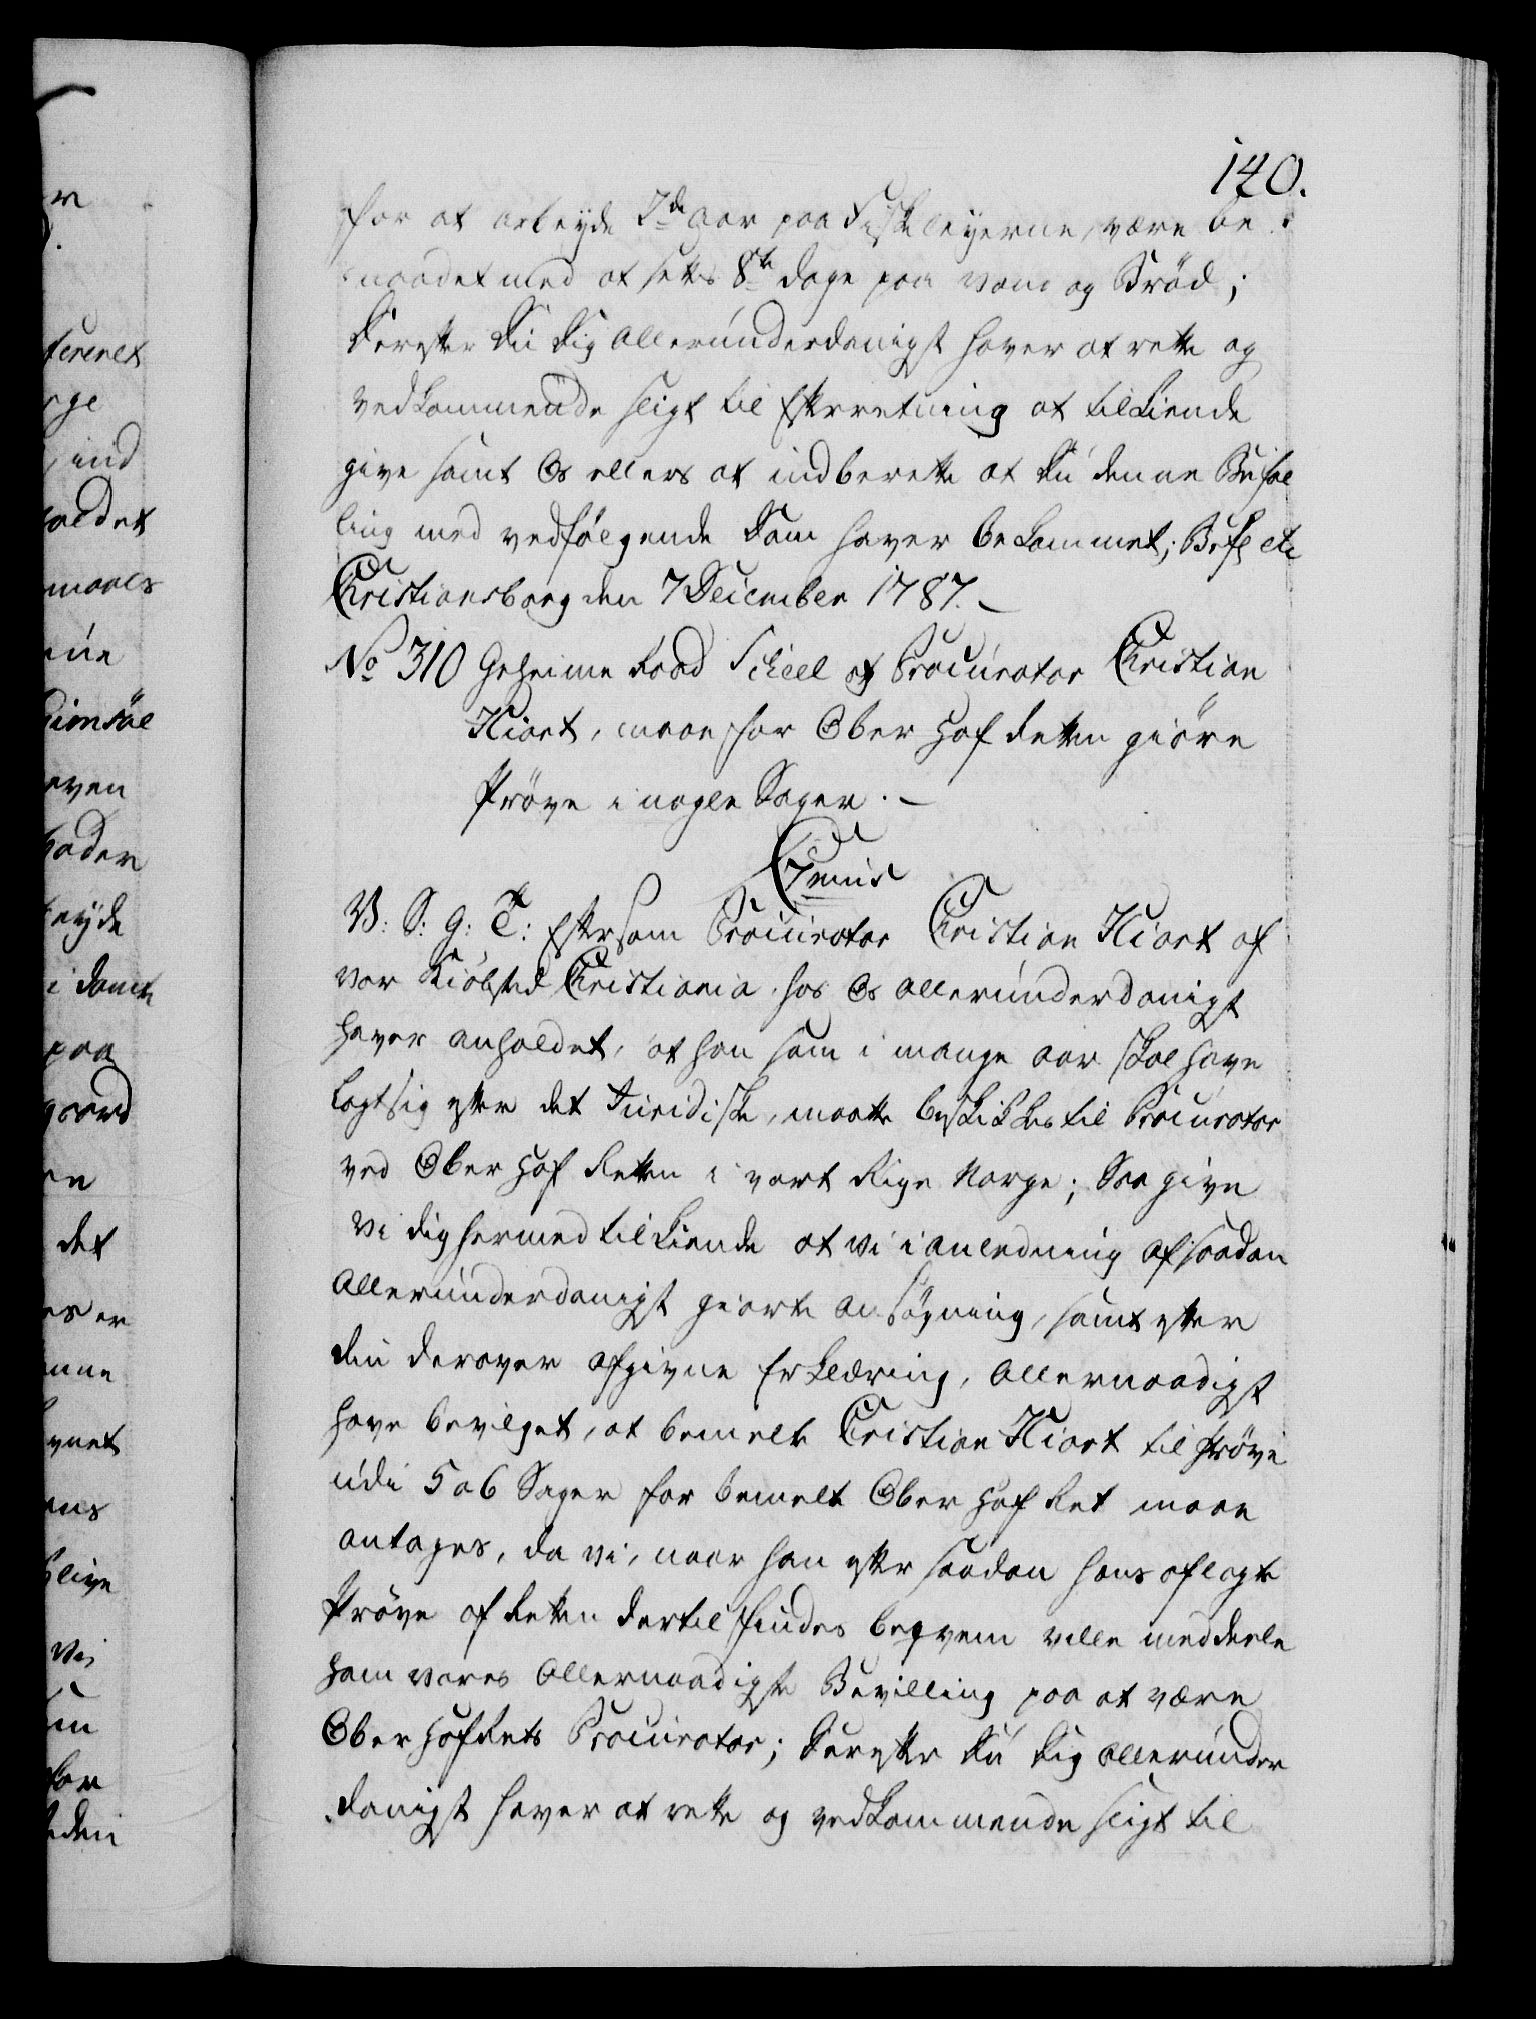 140.
for at arbeyde 7de Aar paa Fiskeleyerne, være be
naadet med at sette 8te Dage paa Vand og Brød;
Derefter Du dig allerunderdanigst haver at rette og
vedkommende sligt til Efterretning at tilkiende
give samt Os ellers at indberette at Du denne Befal
ling med vedfølgende Dom haver bekommet; Befl etc
Christiansborg den 7 December 1787.
No 310 Geheime Raad Scheel at Procurator Christian
Hiort, maae for Ober Hof Retten giøre
Prøve i nogle Sager.
C7mus
V: S: G: T: Eftersom Procurator Christian Hiort af
vor Kiøbsted Christiania hos Os allerunderdanigst
haver anholdet, at han som i mange Aar skal have
lagt sig efter det Juridiske, maatte beskikkes til Procurator
ved Ober Hof Retten i vort Rige Norge; Saa give
vi dig hermed tilkiende at vi i Anledning af saadan
allerunderdanigst giorte Ansøgning, samt efter
din derover afgivne Erklæring, allernaadigst
have bevilget, at bemelte Christian Hiort til Prøve
udi 5 a 6 Sager for bemelte Ober Hof Ret maae
antages, da vi, naar han efter saadan hans aflagte
Prøve af Retten dertil findes beqvem ville meddeele
ham vores allernaadigste Bevilling paa at være
Ober Hof Rets Procurator; Derefter Du dig allerunder
danigst haver at rette og vedkommende sligt til